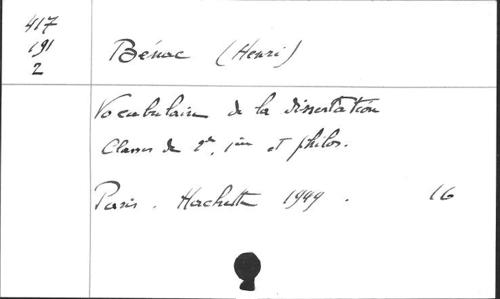 417
191
2
Bénac (Henri)
Vocabulaire de la dissertation
Classes de 2de, 1ère et philos.
Paris. Hachette 1949. 16